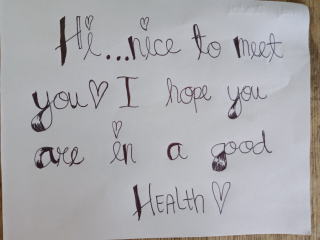 Hi...nice to meet
you♡ I hope you
are in a good
HEALTH♡